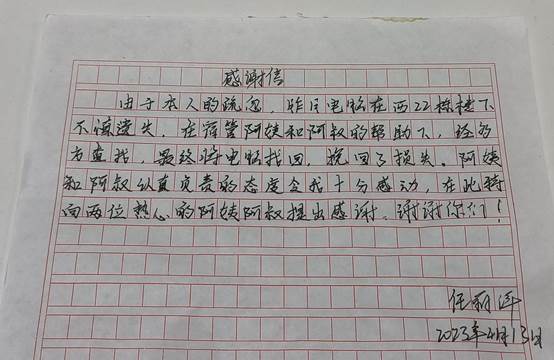 感谢信
由于本人的疏忽，昨日电脑在西22栋楼下
不慎遗失，在宿管阿姨和阿叔的帮助下，经多
方查找，最终将电脑找回，挽回了损失。阿姨
和阿叔认真负责的态度令我十分感动，在此特
向两位热心的阿姨阿叔提出感谢。谢谢你们！
任丽萍
2023年4月13日